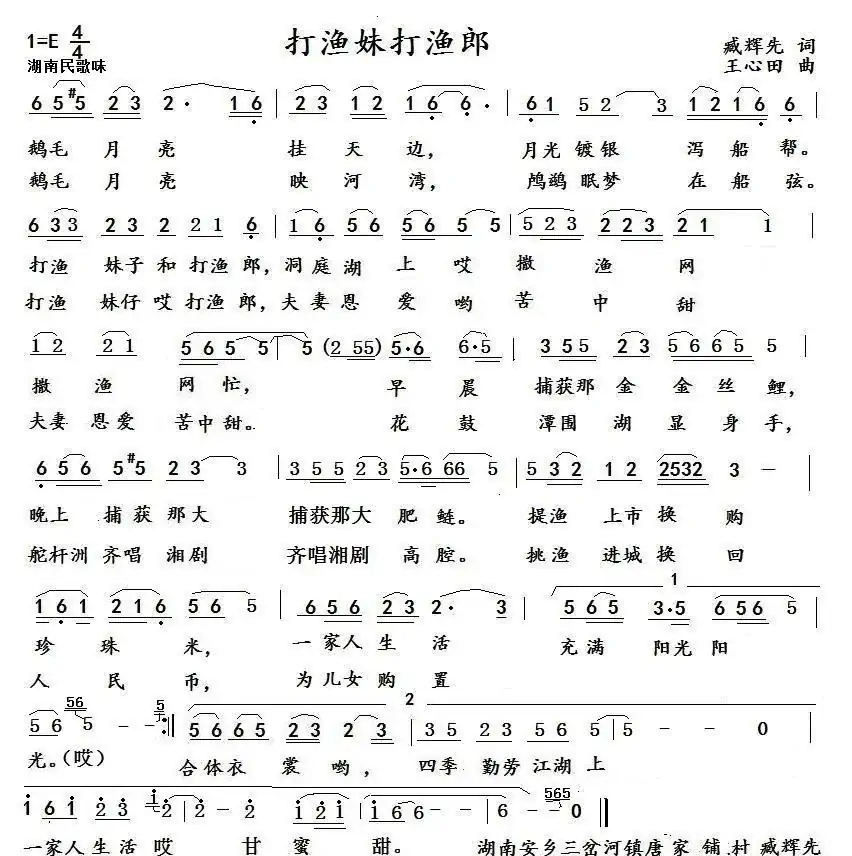 1=E 4/4 打渔妹打渔郎 臧辉先 词
湖南民歌味 王心田 曲
6 5 #5 2 3 2· 1 6 | 2 3 1 2 1 6 6· | 6 1 5 2 3 1 2 1 6 6 |
鹅毛 月 亮 挂 天 边， 月光 镀银 泻 船 帮。
鹅毛 月 亮 映 河 湾， 鸬鹚 眠梦 在 船 弦。
6 3 3 2 3 2 2 1 6 | 1 6 5 6 5 6 5 5 | 5 2 3 2 2 3 2 1 1 |
打渔 妹子 和 打渔 郎，洞庭 湖 上 哎 撒 渔 网
打渔 妹仔 哎 打渔 郎，夫妻 恩 爱 哟 苦 中 甜
1 2 2 1 5 6 5 5 | 5 (2 5 5) 5·6 6·5 | 3 5 5 2 3 5 6 6 5 5 |
撒 渔 网 忙， 早 晨 捕获那 金 金 丝 鲤，
夫妻 恩爱 苦中 甜。 花 鼓 潭围 湖 显 身 手，
6 5 6 5 #5 2 3 3 | 3 5 5 2 3 5·6 6 6 5 | 5 3 2 1 2 2532 3 － |
晚上 捕 获 那大 捕获那大 肥 鲢。 提渔 上市 换 购
舵杆洲 齐唱 湘剧 齐唱湘剧 高 腔。 挑渔 进城 换 回
1 6 1 2 1 6 5 6 5 | 6 5 6 2 3 2· 3 | 5 6 5 3·5 6 5 6 5 |
1
珍 珠 米， 一 家人 生 活 充 满 阳光 阳
人 民 币， 为 儿女 购 置
5 6 56 5 － － 5 :| 5 6 6 5 2 3 2 3 | 3 5 2 3 5 6 5 | 5 － － 0 |
2
光。（哎） 合体 衣 裳 哟， 四季 勤劳 江湖 上
1 6 1 2 3 1 2 | 2 － 1 2 1 | 1 6 6 6 － 565 0 ‖
一家人 生活 哎 甘 蜜 甜。 湖南安乡三岔河镇唐 家 铺 村 臧辉先